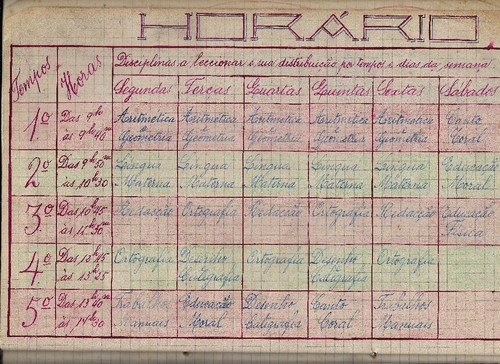 HORÁRIO
Tempos
Horas
Disciplinas a leccionar e sua distribuição por tempos e dias da semana
Segundas Terças Quartas Quintas Sextas Sábados
1º Das 9h às 9h 40m Aritmética e Geometria Aritmética e Geometria Aritmética e Geometria Aritmética e Geometria Aritmética e Geometria Canto Coral
2º Das 9h 50m às 10h 30 Língua Materna Língua Materna Língua Materna Língua Materna Língua Materna Educação Moral
3º Das 10h 45 às Redacção Ortografia Redacção Ortografia Redacção Educação Física
4º Das 13h 15 às 13h Ortografia Desenho Caligrafia Ortografia Desenho Caligrafia Ortografia
5º Das 13h às 14h 30 Trabalhos Manuais Educação Moral Desenho Caligrafia Canto Coral Trabalhos Manuais